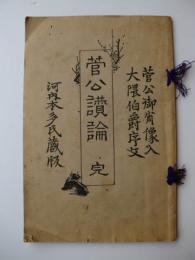 菅公御肖像入
大隈伯爵序文
菅公讚論 完
河内本多氏蔵版